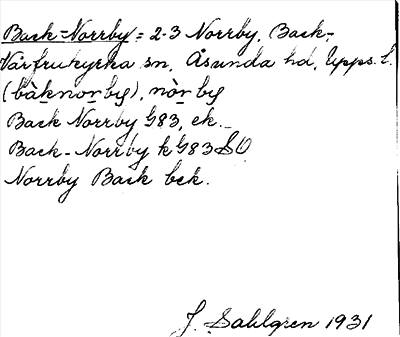 Back=Norrby = 2-3 Norrby, Back-,
Vårfrukyrka sn, Åsunda hd, Upps. l.
(bàknorby), nòrby
Back Norrby G83, ek.
Back-Norrby k G83 SO
Norrby Back bck.
J. Sahlgren 1931